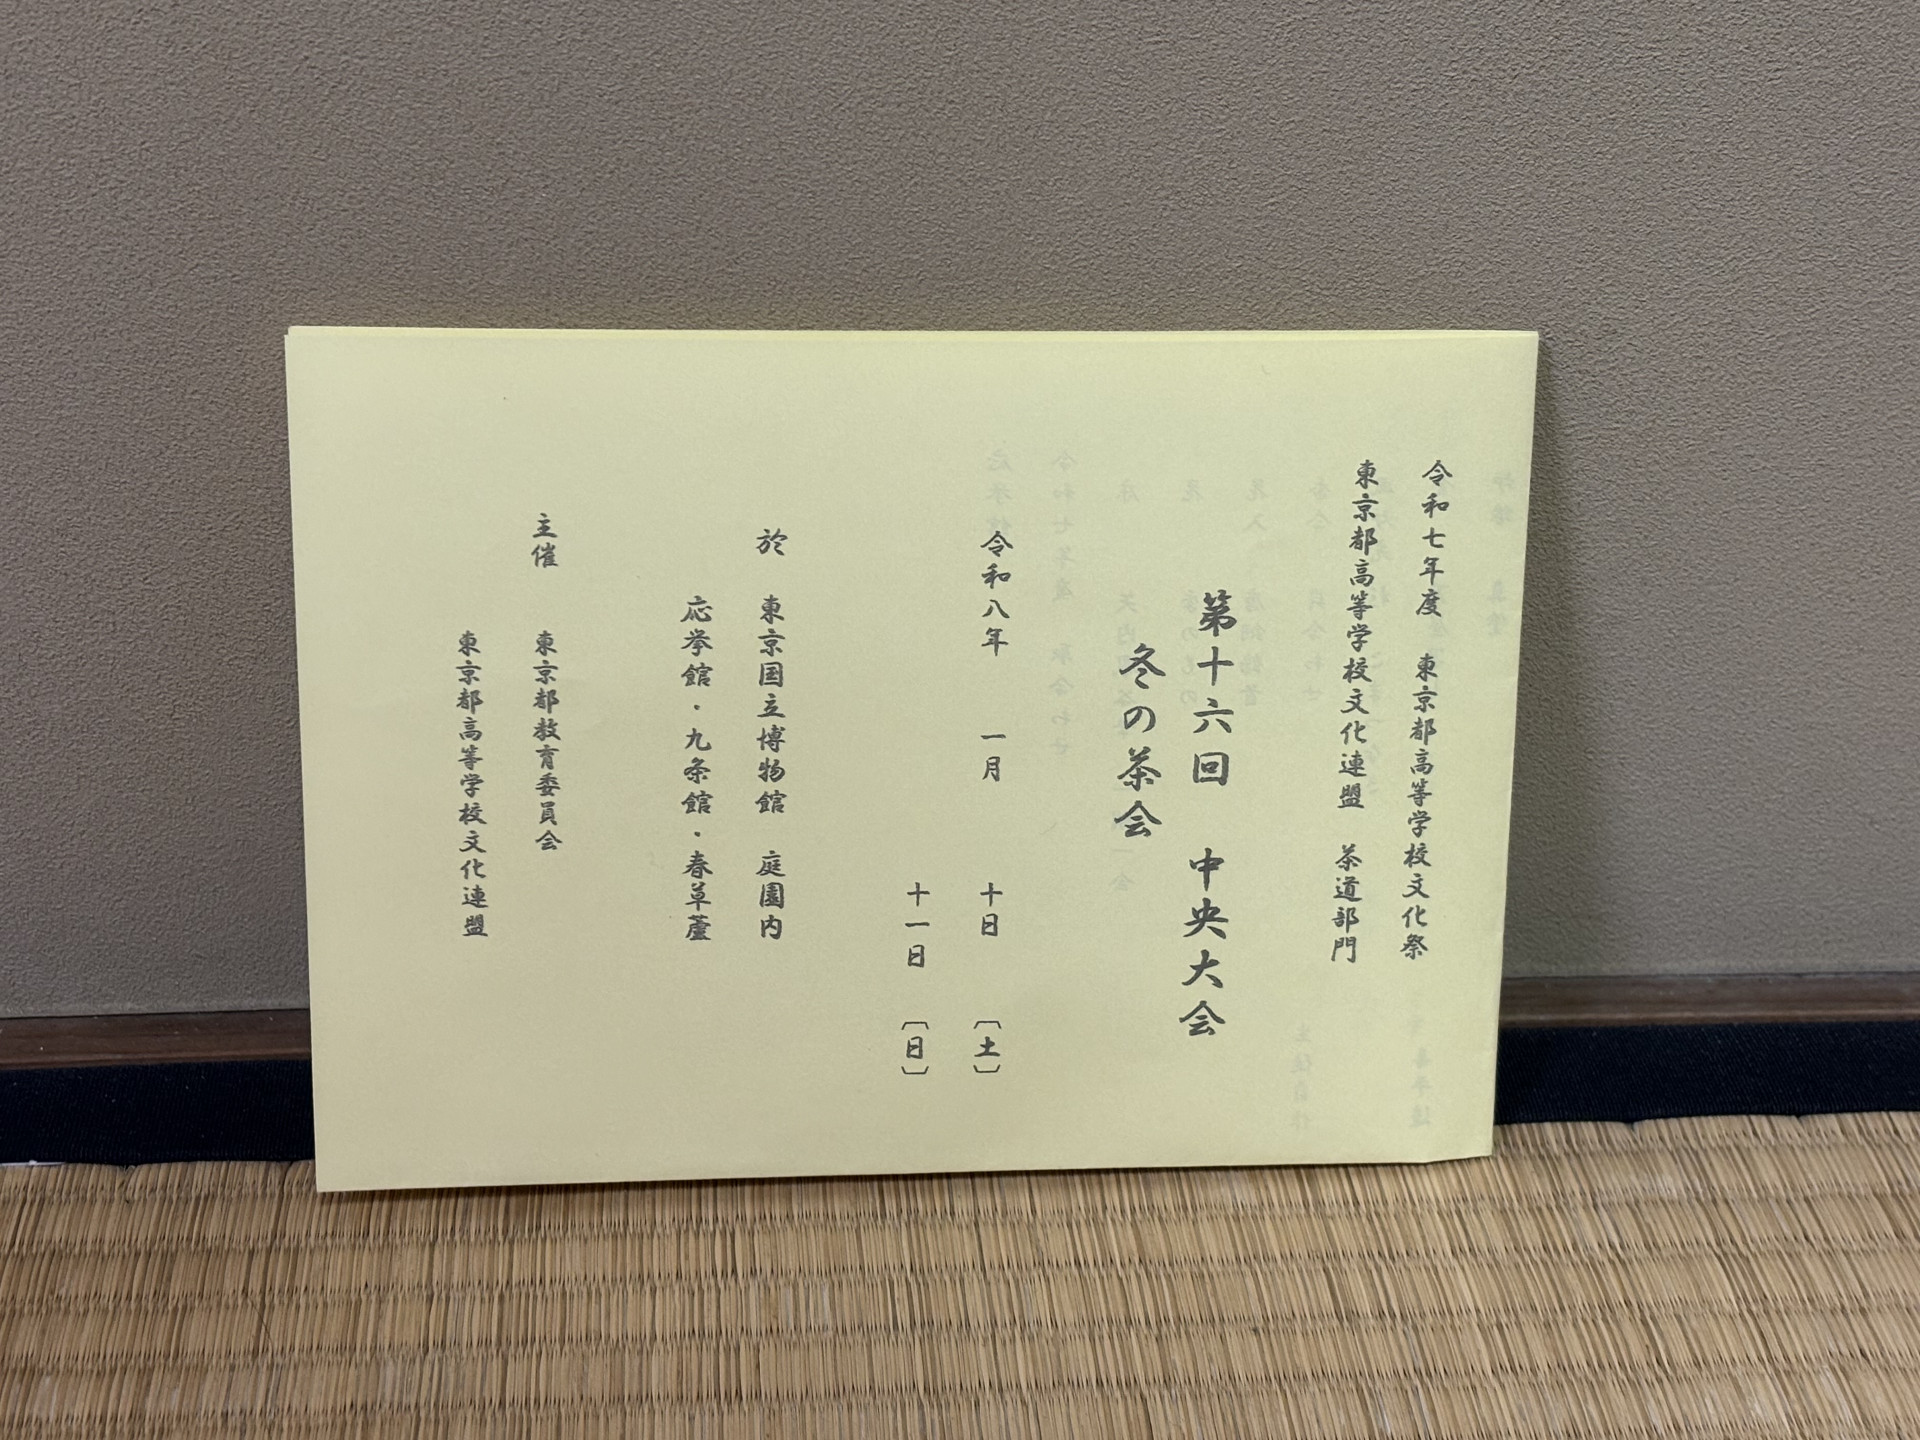 令和七年度　東京都高等学校文化祭
東京都高等学校文化連盟　茶道部門
第十六回　中央大会
冬の茶会
令和八年　一月　十日　〔土〕
十一日　〔日〕
於　東京国立博物館　庭園内
応挙館・九条館・春草蘆
主催　東京都教育委員会
東京都高等学校文化連盟